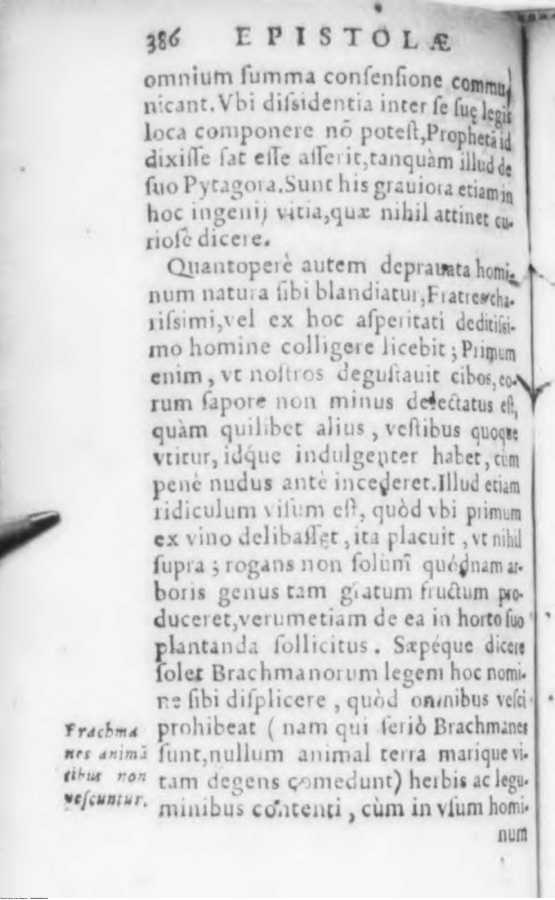 386 EPISTOLÆ
omnium ſumma conſenſione commu-
nicant. Vbi diſsidentia inter ſe ſuę legis
loca componere nō poteſt, Prophetā id
dixiſſe ſat eſſe aſſerit, tanquàm illud de
ſuo Pytagora. Sunt his grauiora etiam in
hoc ingenij vitia, quæ nihil attinet cu-
rioſè dicere.
Quantoperè autem deprauata homi-
num natura ſibi blandiatur, Fratres cha-
riſſimi, vel ex hoc aſperitati deditiſsi-
mo homine colligere licebit; Primum
enim, vt noſtros deguſtauit cibos, eo-
rum ſapore non minus delectatus eſt,
quàm quilibet alius, veſtibus quoque
vtitur, idq́ue indulgenter habet, cùm
penè nudus antè incederet. Illud etiam
ridiculum viſum eſt, quòd vbi primum
ex vino delibaſſet, ita placuit, vt nihil
ſupra; rogans non ſolùm quódnam ar-
boris genus tam gratum fructum pro-
duceret, verumetiam de ea in horto ſuo
plantanda ſollicitus. Sæpéque dicere
ſolet Brachmanorum legem hoc nomi-
ne ſibi diſplicere, quòd omnibus veſci
prohibeat (nam qui ſeriò Brachmanes
ſunt, nullum animal terra marique vi-
tam degens comedunt) herbis ac legu-
minibus contenti, cùm in vſum homi-
num
Brachma
nes animā
tibus non
veſcuntur.